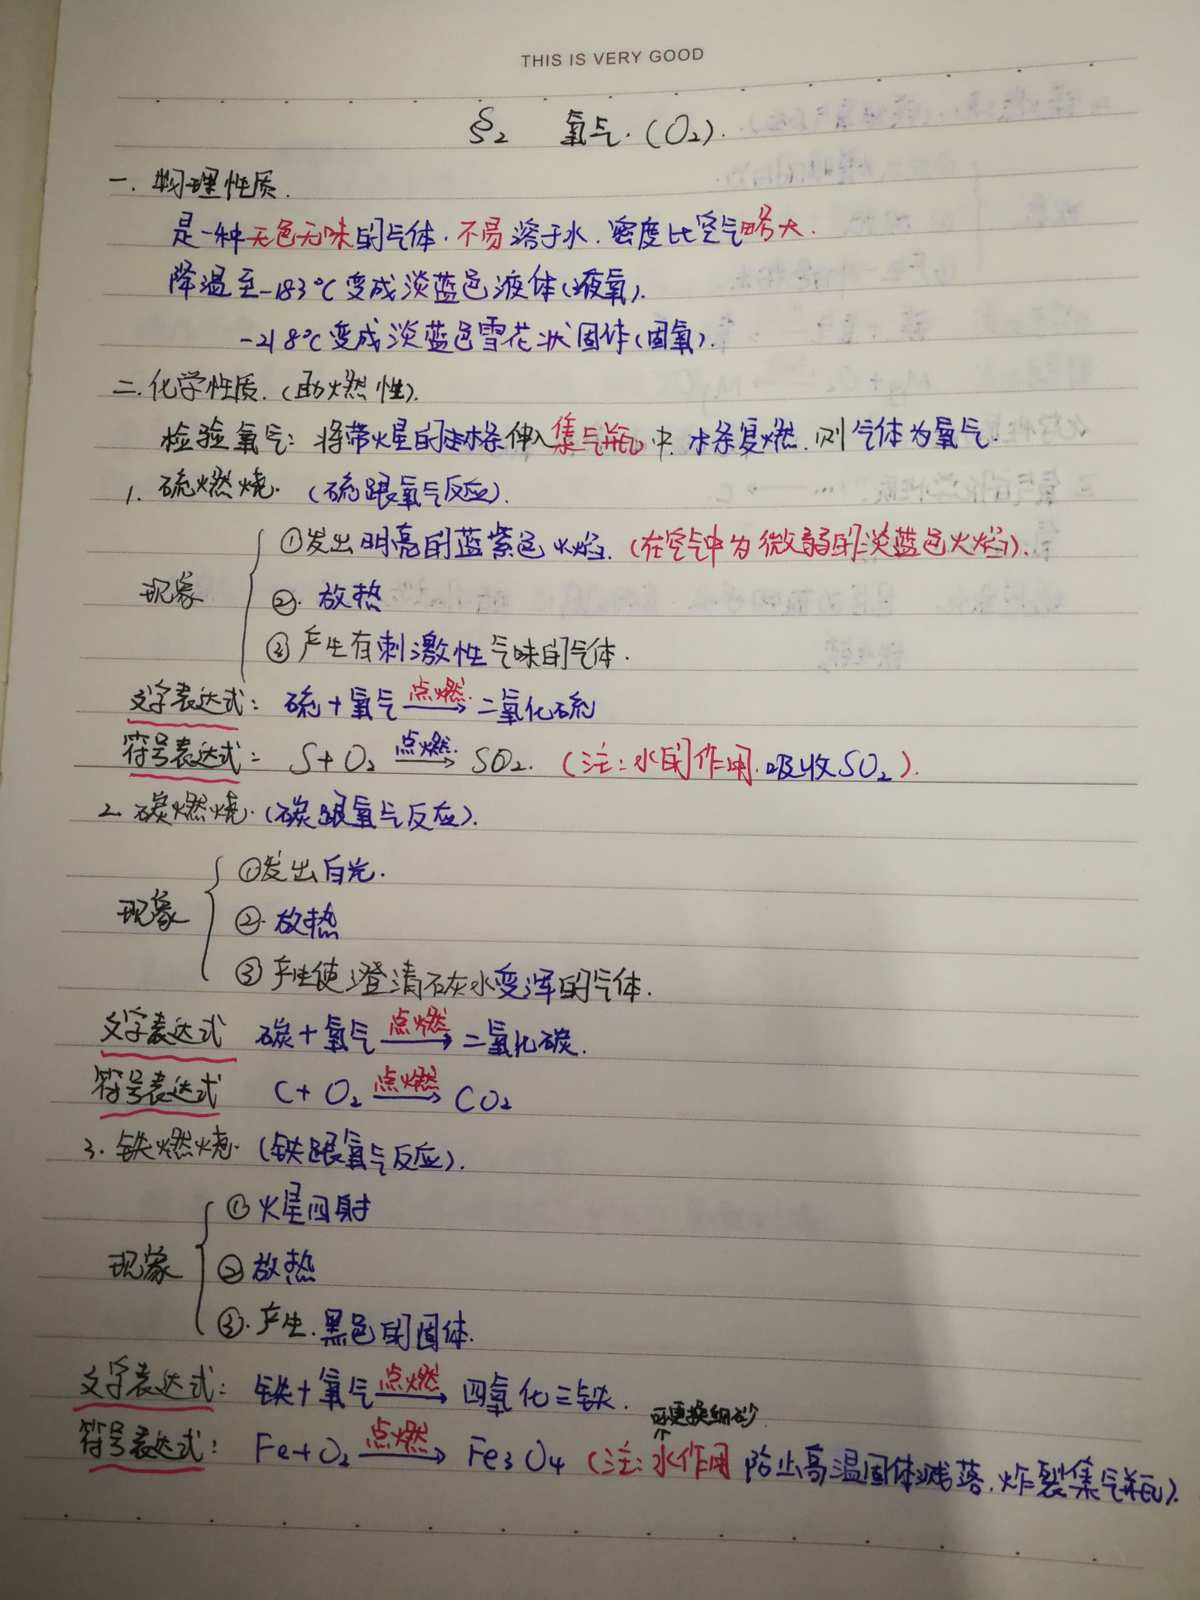 THIS IS VERY GOOD
§2 氧气.(O₂).
一. 物理性质.
是一种无色无味的气体.不易溶于水.密度比空气略大.
降温至-183℃变成淡蓝色液体(液氧).
-218℃变成淡蓝色雪花状固体(固氧).
二.化学性质.(助燃性).
检验氧气:将带火星的木条伸入集气瓶中.木条复燃.则气体为氧气.
1.硫燃烧.(硫跟氧气反应).
①发出明亮的蓝紫色火焰.(在空气中为微弱的淡蓝色火焰).
现象 ②.放热
③产生有刺激性气味的气体.
文字表达式:硫+氧气 点燃→ 二氧化硫
符号表达式:S+O₂ 点燃→ SO₂.(注:水的作用.吸收SO₂).
2.碳燃烧.(碳跟氧气反应).
①发出白光.
现象 ②.放热
③产生使澄清石灰水变浑的气体.
文字表达式 碳+氧气 点燃→ 二氧化碳.
符号表达式 C+O₂ 点燃→ CO₂
3.铁燃烧.(铁跟氧气反应).
①火星四射
现象 ②放热
③.产生.黑色的固体.
文字表达式:铁+氧气 点燃→ 四氧化三铁.
可更换细砂
符号表达式:Fe+O₂ 点燃→ Fe₃O₄(注:水作用 防止高温固体溅落.炸裂集气瓶).